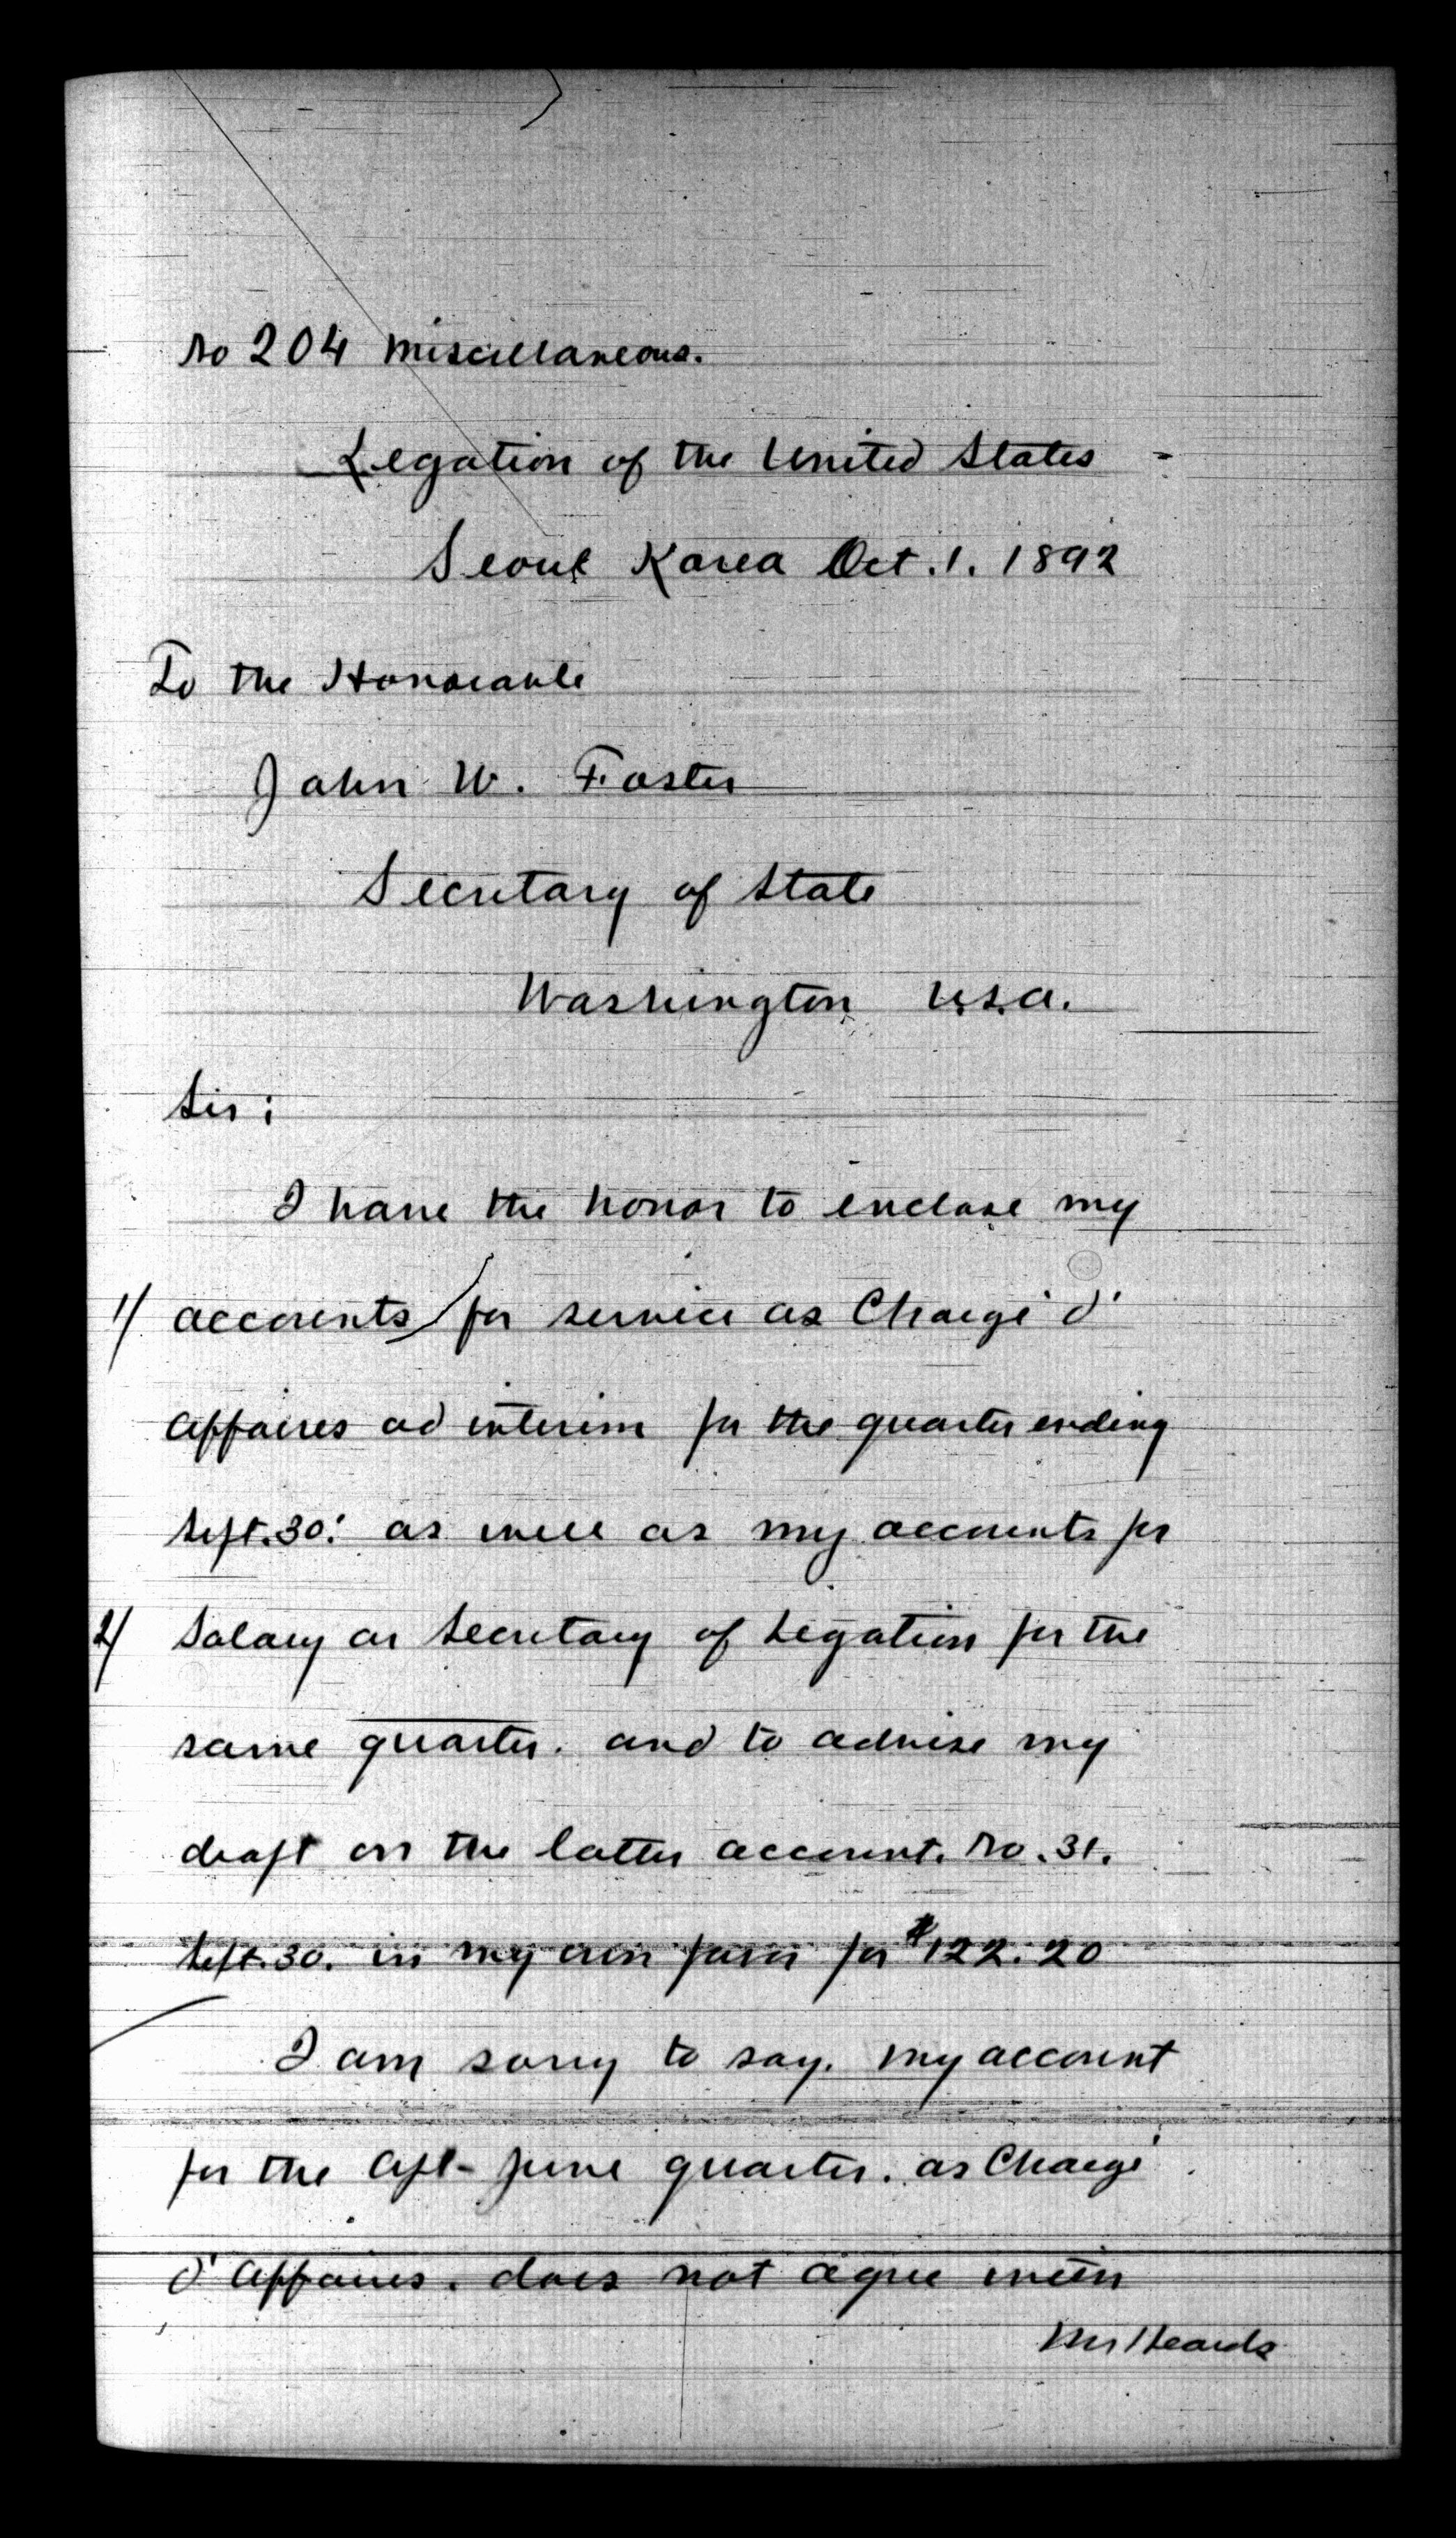 No 204 Miscellaneous.
Legation of the United States
Seoul Korea Oct. 1. 1892
To the Honorable
John W. Foster
Secretary of State
Washington U.S.A.
Sir:
I have the honor to enclose my
1/ accounts for service as Chargé d'
Affaires ad interim for the quarter ending
Sept. 30: as well as my accounts for
2/ Salary as Secretary of Legation for the
same quarter. and to advise my
draft on the latter account. No. 31.
Sept. 30. in my own favor for $122.20
I am sorry to say. my account
for the Apl- June quarter. as Chargé
d'Affaires. does not agree with
Mr Heards